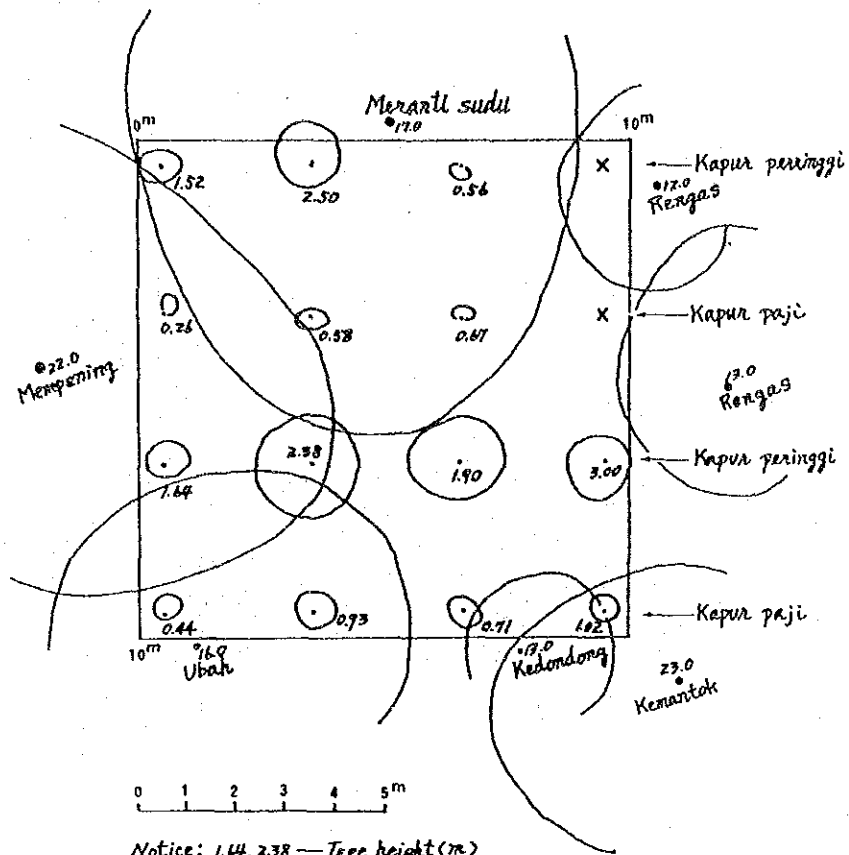 Meranti sudu
0m 17.0 10m
1.52 2.50 0.56 × Kapur peringgi
17.0
Rengas
0.26 0.58 0.67 × Kapur paji
22.0
Mempening
Rengas
1.64 2.38 1.90 3.00 Kapur peringgi
0.44 0.93 0.71 1.02 Kapur paji
10m 16.0 17.0
Ubah Kedondong
23.0
Kemantok
0 1 2 3 4 5m
Notice: 1.64, 2.38 — Tree height (m)